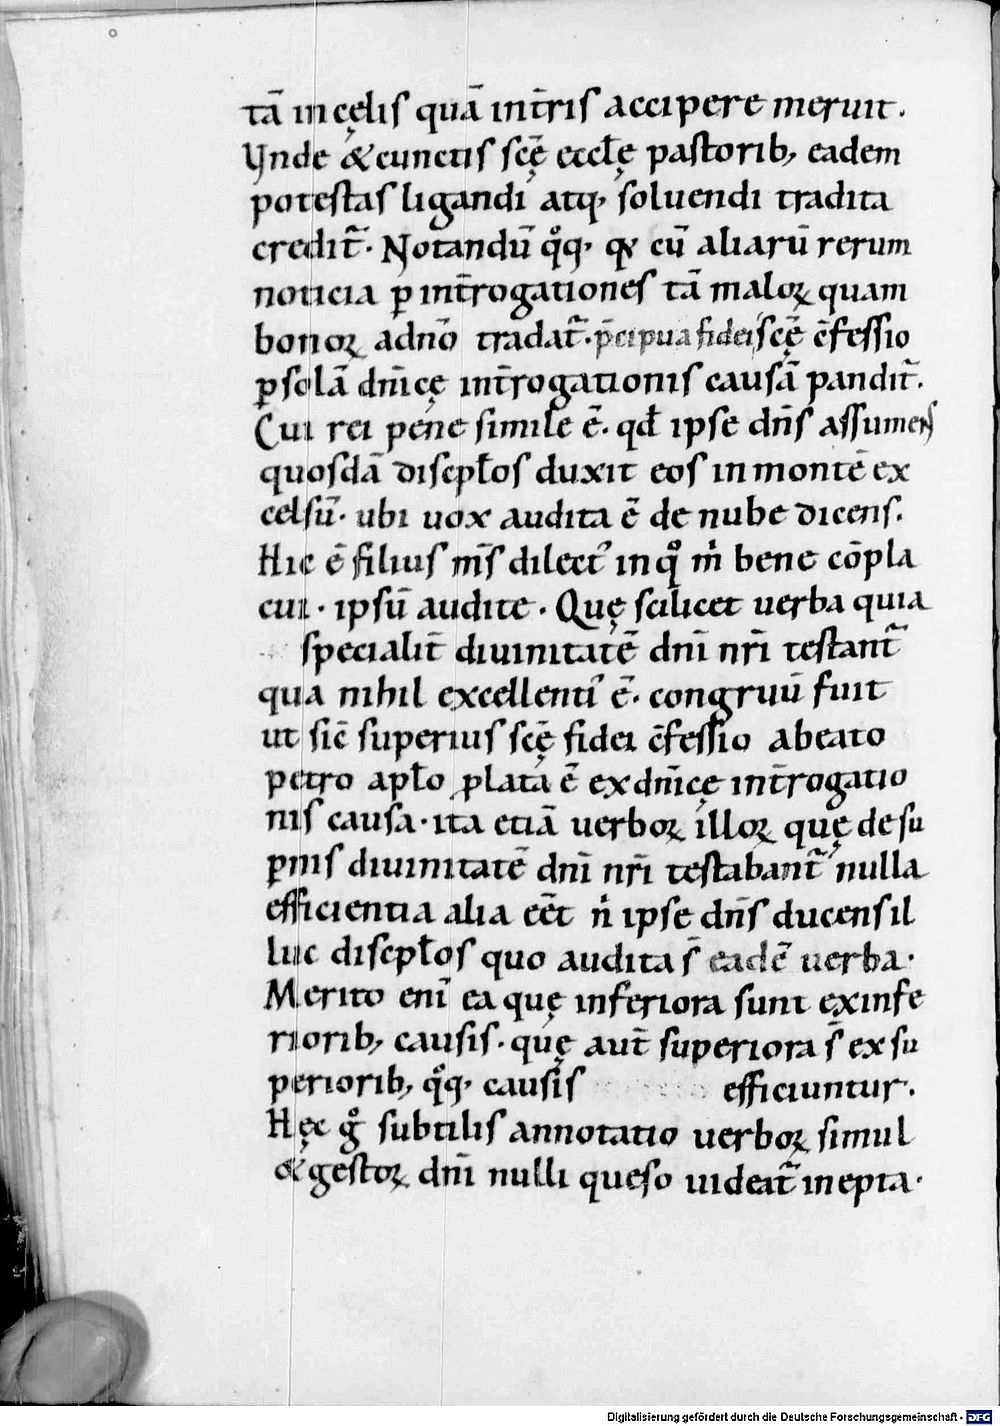 tā in cęlis quā in t̄ris accipere meruit.
Vnde & cunctis scę̄ eccłę pastorib; eadem
potestas ligandi atq; soluendi tradita
credit᷑. Notandū qͦq; qͥ cū aliarū rerum
noticia ꝑ int̄rogationes tā maloꝝ quam
bonoꝝ ad dn̄o tradat᷑. p̄cipua fidei scę̄ c̄fessio
ꝑ solā dn̄icę int̄rogationis causā pandit᷑.
Cui rei pene simile ē. qd̄ ipse dn̄s assumens
quosdā discipłos duxit eos in montē ex
celsū. ubi uox audita ē de nube dicens.
Hic ē filius m̄s dilect᷒ in qͦ m̍ bene cōpla
cui. ipsū audite. Quę scilicet uerba quia
specialit̄ diuinitatē dn̄i nr̄i testant᷑
qua nihil excellenti᷒ ē. congruū fuit
ut sic̄ superius scę̄ fidei c̄fessio a beato
petro apło ꝓlata ē ex dn̄icę int̄rogatio
nis causa. ita etiā uerboꝝ illoꝝ quę de su
ꝑnis diuinitatē dn̄i nr̄i testabant᷑ nulla
efficientia alia eēt n̍ ipse dn̄s ducens il
luc discipłos quo audita s̄ eadē uerba.
Merito eni̅ ea quę inferiora sunt ex infe
riorib; causis. quę aut̄ superiora s̄ ex su
periorib; qͦq; causis efficiuntur.
Hęc gͦ subtilis annotatio uerboꝝ simul
& gestoꝝ dn̄i nulli queso uideat᷑ inepta.
Digitalisierung gefördert durch die Deutsche Forschungsgemeinschaft - DFG